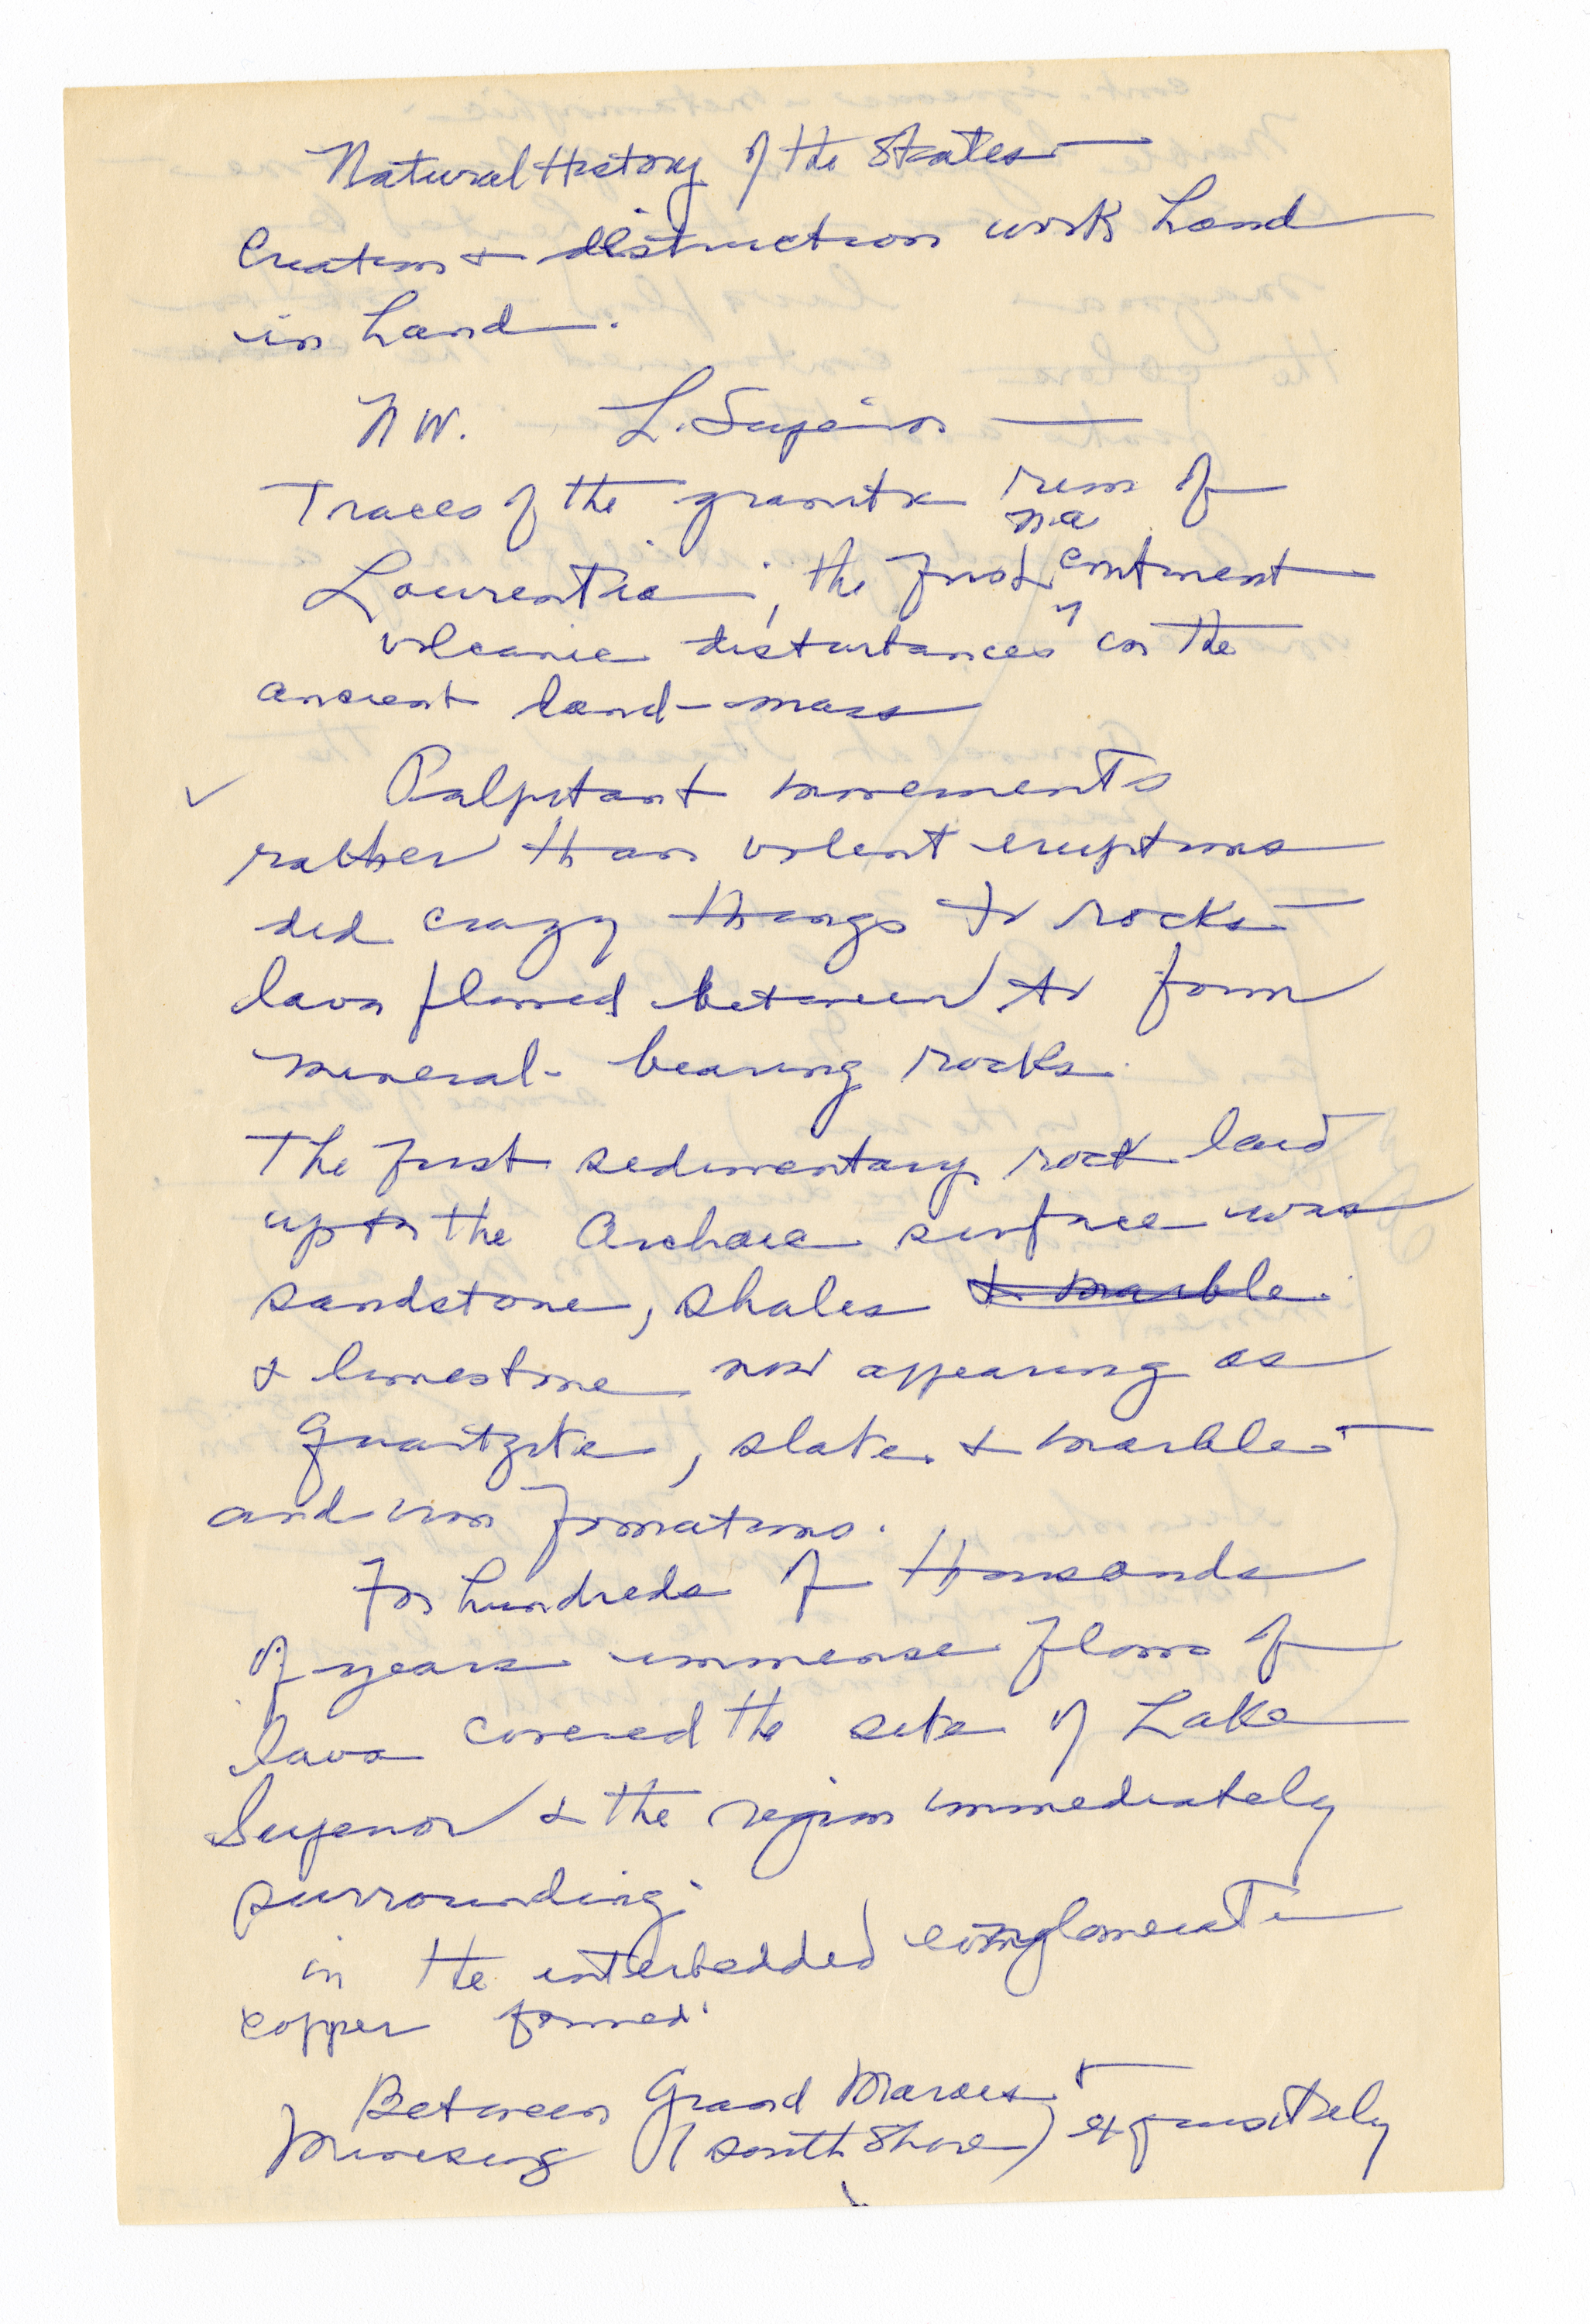 Natural History of the States —
Creation & distruction work hand
in hand.
NW. L. Superior —
Traces of the granite rim of
N.A.
Laurentia; the first continent
volcanic disturbances in the
ancient land-mass
✓ Palpitant movements
rather than violent eruptions
did crazy things to rocks —
lava flowed between to form
mineral-bearing rocks.
The first sedimentary rock laid
upon the Archaic surface was
sandstone, shales & marble.
& limestone now appearing as
quartzite, slate & marble —
and iron formations.
For hundreds of thousands
of years immense flows of
lava covered the site of Lake
Superior & the region immediately
surrounding.
in the interbedded conglomerate
copper formed.
Between Grand Marais &
(south shore) exquisitely